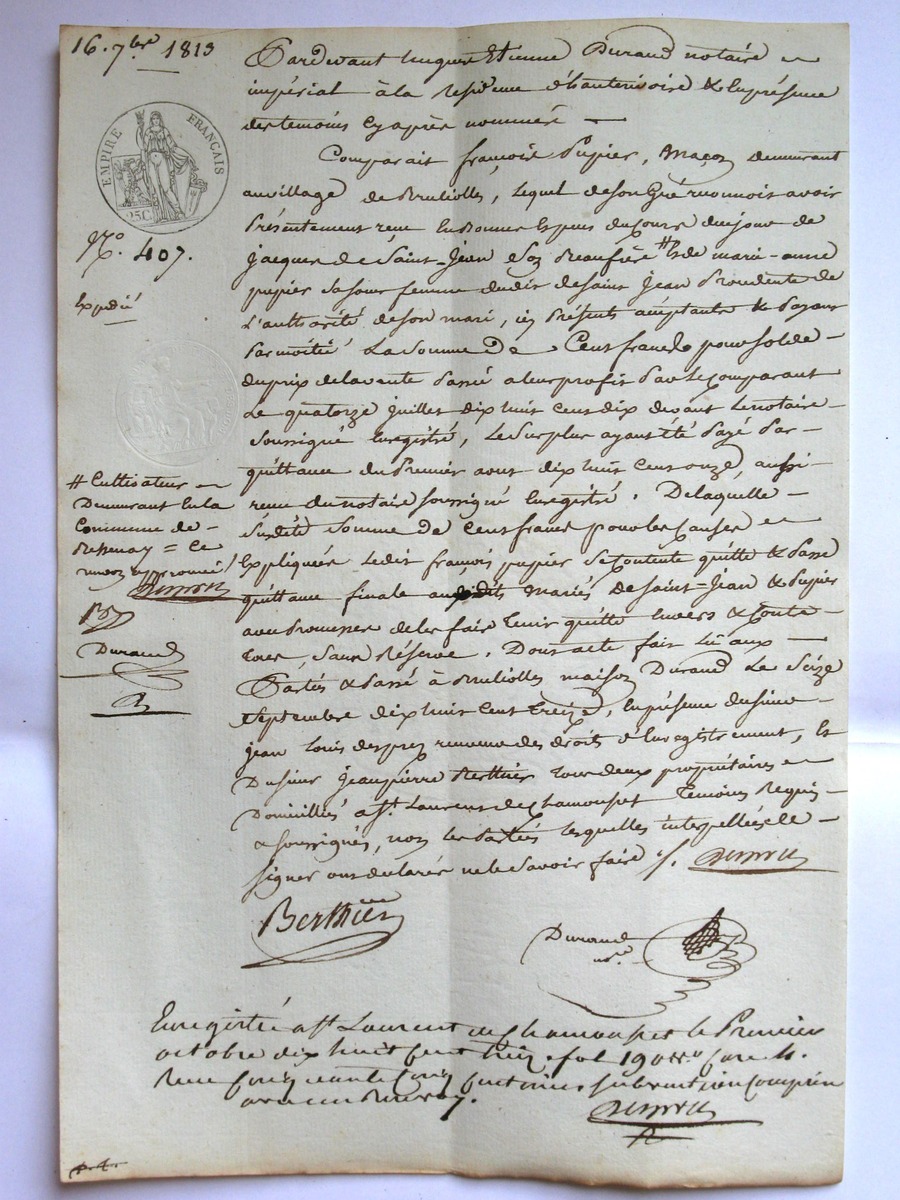 16. 7bre 1813
EMPIRE FRANÇAIS
25C.
No. 407.
Expédié
Pardevant hugue Etienne Durand notaire
impérial à la residence d'hauterivoire & en présence
des temoins cy après nommés
Comparait françois Pupier, Maçon demeurant
au village de Brullioles, lequel de son Gré reconnois avoir
Présentement reçu en Bonnes Espèces du Cours du jour de
jacques de Saint-Jean son Beaufrère # & de marie-anne
pupier sa soeur femme dudit de saint jean Procédente de
L'authorité de son mari, ici Présents acceptants & Payans
Par moitié La Somme De Cent francs pour solde
du prix de la vente Passé a leur profit Par le comparant
Le quatorze juillet dix huit Cent dix devant le notaire
Soussigné Enregistré, Le Surplus ayant été Payé Par
quittance du Premier aout dix huit Cent onze, aussi
reçue du notaire soussigné Enregistré. De laquelle
Susdite Somme de Cent francs pour les Causes
Expliquées Ledit françois pupier Se Contente quitte & Passe
quittance finale auxdits Mariés De Saint-Jean & Pupier
avec Promesse de les faire tenir quitte Envers & Contre
tous, Sans Réserve. Dont acte fait Lu aux
Parties & Passé à Brullioles maison Durand Le Seize
Septembre dix huit Cent treize, en présence du sieur
jean Louis desprez receveur des droits d'Enregistrement, &
Du sieur jean pierre Berthier tous deux propriétaires
Domiciliés a St. Laurent de Chamousset Témoins Requis
& soussignés, non les Parties lesquelles interpellées de
signer ont déclarés ne le Savoir faire ./.
# Cultivateur
Demeurant en la
Commune de
Bessenay = Ce
renvoy approuvé
Desprez
Durand
Desprez
Berthier
Durand
nre.
Enregistré a St Laurent de Chamousset le Premier
octobre dix huit Cent treize fol 190 Vo Case 4.
Reçu Cinquante Cinq Centimes subvention Comprise
avec un Renvoy.
Desprez